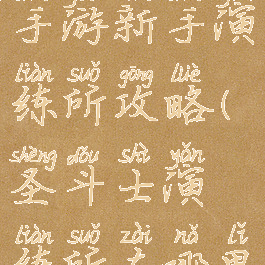 手游新手演
liàn suǒ gōng lüè
练所攻略(
shèng dòu shì yǎn
圣斗士演
liàn suǒ zài nǎ lǐ
练所在哪里